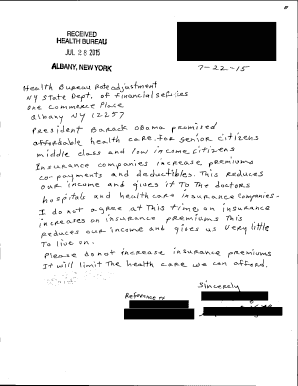 RECEIVED
HEALTH BUREAU
JUL 28 2015
ALBANY, NEW YORK
7-22-15
Health Bureau Rate adjustment
NY State Dept. of financial services
one Commerce Place
Albany NY 12257
President Barack Obama promised
affordable health care for senior citizens
middle class and low income citizens
Insurance companies increase premiums
co-payments and deductibles. This reduces
our income and gives it To The doctors
hospitals and healthcare insurance companies.
I do not agree at This time on insurance
increases on insurance premiums This
reduces our income and gives us very little
To live on.
Please do not increase insurance premiums
It will limit The health care we can afford.
Sincerely
Reference #